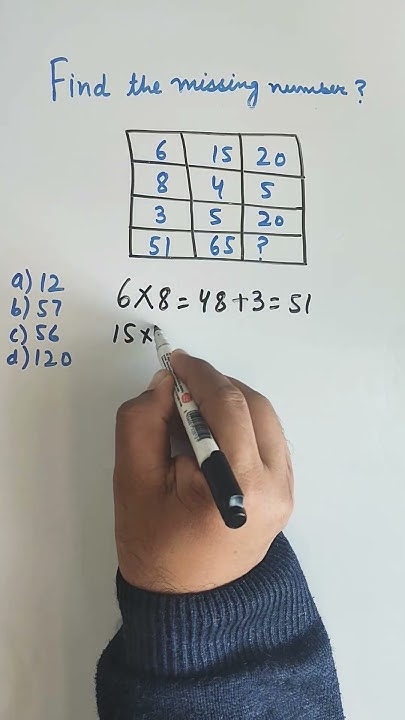 Find the missing number?
6 15 20
8 4 5
3 5 20
51 65 ?
a) 12
b) 57
c) 56
d) 120
6×8=48+3=51
15×